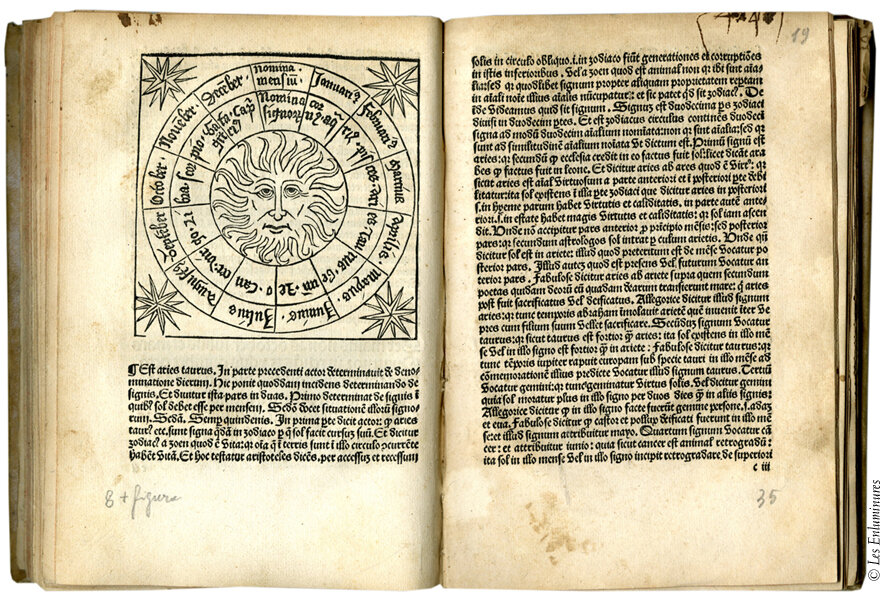 Nomina mensiū.
Januariꝰ
Februariꝰ
Martius
Aprilis
Mayus
Junius.
Julius
Augustꝰ
September
October.
Nouēber.
Decēber.
Nomina
signoꝝ
pisces.
aries
Taurus
Gemi.
Leo
can
cer.
virgo.
libra
scorpio.
¶Est aries taurus. In parte precedenti actor determinauit de deno
minatione dierum. Hic ponit quoddam incidens determinando de
signis. Et diuitur ista pars in duas. Primo determinat de signis ī
quibꝰ sol debet esse per mensem. Scdō docet situationē illoꝝ signo
rum. Scdam. Semp quindenis. In prima pte dicit actor: ꝙ aries
taur̄ etc. sunt signa qdā in zodiaco p q̄ sol facit cursuʒ suū. Et dicitur
zodiacꝰ a zoen quod ē vita: qꝛ oīa q̄ ī terris sunt ī illo circulo ꝯcurrēte
habēt vitā. Et hoc testatur aristoteles dicēs. per accessuʒ et recessum
8 + figura
19
solis in circulo obliquo .i. in zodiaco fiūt generationes et corruptiōes
in istis inferioribus. Vel a zoen quod est animal non qꝛ ibi sint aīa-
lia: sed qꝛ quodlibet signum propter aliquam proprietatem reptam
in aīali noīe illius aīalis nūcupatur: et sic patet qd sit zodiacꝰ. De
īde videamus quid sit signum. Signuʒ est duodecima ps zodiaci
diuisi in duodecim ptes. Et est zodiacus circulus continēs duodecī
signa ad modū duodecim aīalium nomīata: non qꝛ sint aīalia: sed qꝛ
sunt ad similitudinē aīalium noīata vt dictum est. Primū signū est
aries: qꝛ secundū ꝙ ecclesia credit in eo factus fuit sol: licet dicāt ara
bes ꝙ factus fuit in leone. Et dicitur aries ab ares quod ē virtꝰ: qꝛ
sicut aries est aīal virtuosum a parte anteriori et ī posteriori pte debi
litatur: ita sol existens ī illa pte zodiaci que dicitur aries in posteriori
.s. in hyeme parum habet virtutis et caliditatis. in parte autē ante-
riori .s. in estate habet magis virtutis et caliditatis: qꝛ sol iam ascen
dit. Unde nō accipitur pars anterior p precipio mēsis: sed posterior
pars: qꝛ secundum astrologos sol intrat p culum arietis. Unde qn̄
dicitur sol est in ariete: illud quod preteritum est de mēse vocatur po
sterior pars. Illud autez quod est presens vel futurum vocatur an
terior pars. Fabulose dicitur aries ab ariete supra quem secundum
poetas quidam deorū cū quadam dearum transierunt mare: q̄ aries
post fuit sacrificatus vel deificatus. Allegorice dicitur illud signum
aries: qꝛ tunc temporis abraham īmolauit arietē quē inuenit īter ve
pres cum filium suum vellet sacrificare. Secūduʒ signum vocatur
taurus: qꝛ sicut taurus est fortior ꝙ aries: ita sol existens in illo mē
se vel in illo signo est fortior ꝙ in ariete: Fabulose dicitur taurus: qꝛ
tunc tēporis iupiter rapuit europam sub specie tauri in illo mēse ad
cōmemorationē illius predicte vocatur illud signum taurus. Tertiū
vocatur gemini: qꝛ tunc geminatur virtus solis. vel dicitur gemini
quia sol moratur plus in illo signo per duos dies ꝙ in aliis signis:
Allegorice dicitur ꝙ in illo signo facte fuerūt gemine persone .s. adaʒ
et eua. Fabulose dicitur ꝙ castor et pollux deificati fuerunt in illo mē
se: et illud signum attribuitur mayo. Quartum signum vocatur cā
cer: et attribuitur iunio: quia sicut cancer est animal retrogradū:
ita sol in illo mense vel in illo signo incipit retrogradare de superiori
c iii
35
© Les Enluminures